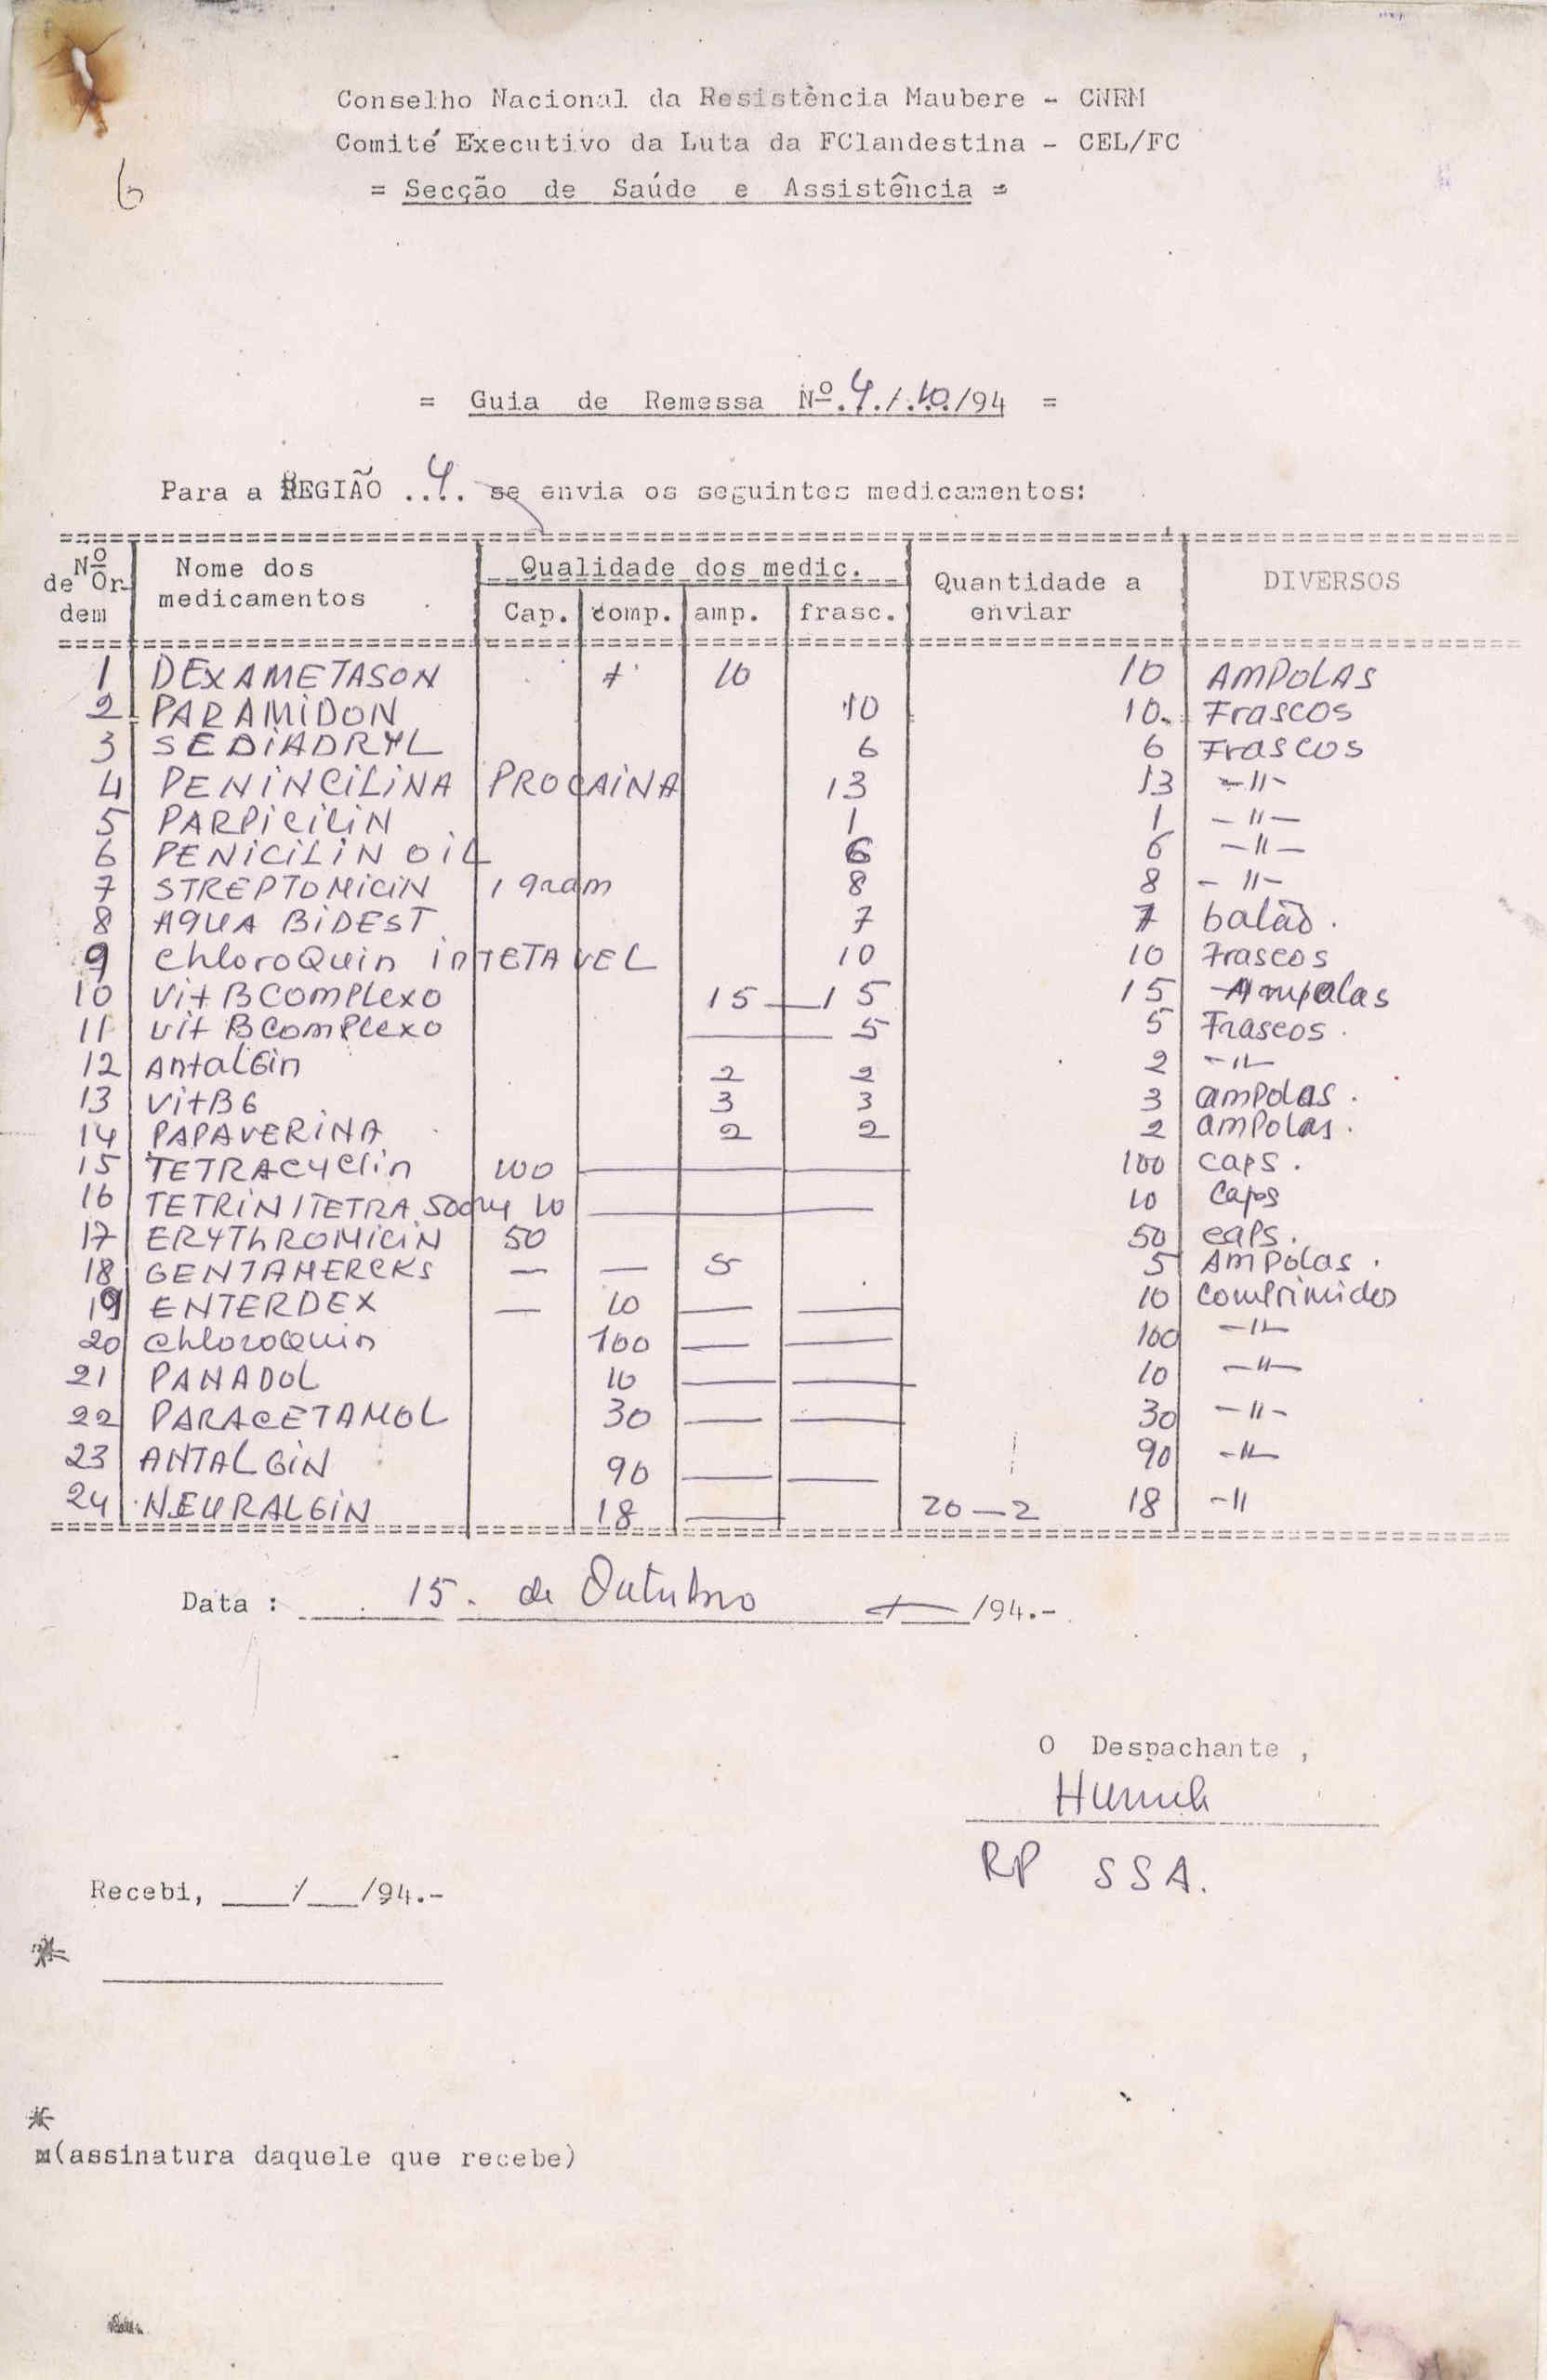 Conselho Nacional da Resistência Maubere - CNRM
Comité Executivo da Luta da FClandestina - CEL/FC
6
= Secção de Saúde e Assistência =
= Guia de Remessa Nº.4./.10./94 =
Para a REGIÃO ..4.. se envia os seguintes medicamentos:
Nº de Ordem Nome dos medicamentos Qualidade dos medic. Quantidade a enviar DIVERSOS
Cap. comp. amp. frasc.
1 DEXAMETASON + 10 10 AMPOLAS
2 PARAMIDON 10 10. Frascos
3 SEDIADRYL 6 6 Frascos
4 PENINCILINA PROCAINA 13 13 -"-
5 PARPICILIN 1 1 -"-
6 PENICILIN OIL 6 6 -"-
7 STREPTOMICIN 1 gram 8 8 -"-
8 AQUA BIDEST. 7 7 balão.
9 ChloroQuin inTETAVEL 10 10 Frascos
10 Vit BComplexo 15 — 15 15 Ampolas
11 Vit BComplexo — 5 5 Frascos.
12 AntalGin 2 2 2 -"-
13 VitB6 3 3 3 ampolas.
14 PAPAVERINA 2 2 2 ampolas.
15 TETRACyclin 100 — 100 caps.
16 TETRIN/TETRA 500mg 10 — 10 Caps
17 ERYThROMICIN 50 50 caps.
18 GENTAMERCKS — — 5 5 AMPolas.
19 ENTERDEX — 10 — — 10 Comprimidos
20 ChloroQuin 100 — — 100 -"-
21 PANADOL 10 — — 10 -"-
22 PARACETAMOL 30 — — 30 -"-
23 ANTALGIN 90 — — 90 -"-
24 NEURALGIN 18 — 20 — 2 18 -"
Data : 15. de Outubro /94.-
O Despachante ,
RP SSA.
Recebi, ___/___/94.-
*
*
(assinatura daquele que recebe)